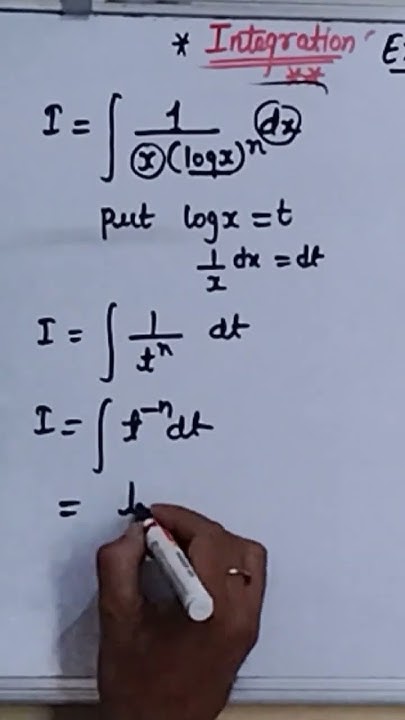 * Integration
I = ∫ 1 / x (log x)^n dx
put log x = t
1/x dx = dt
I = ∫ 1 / t^n dt
I = ∫ t^-n dt
=